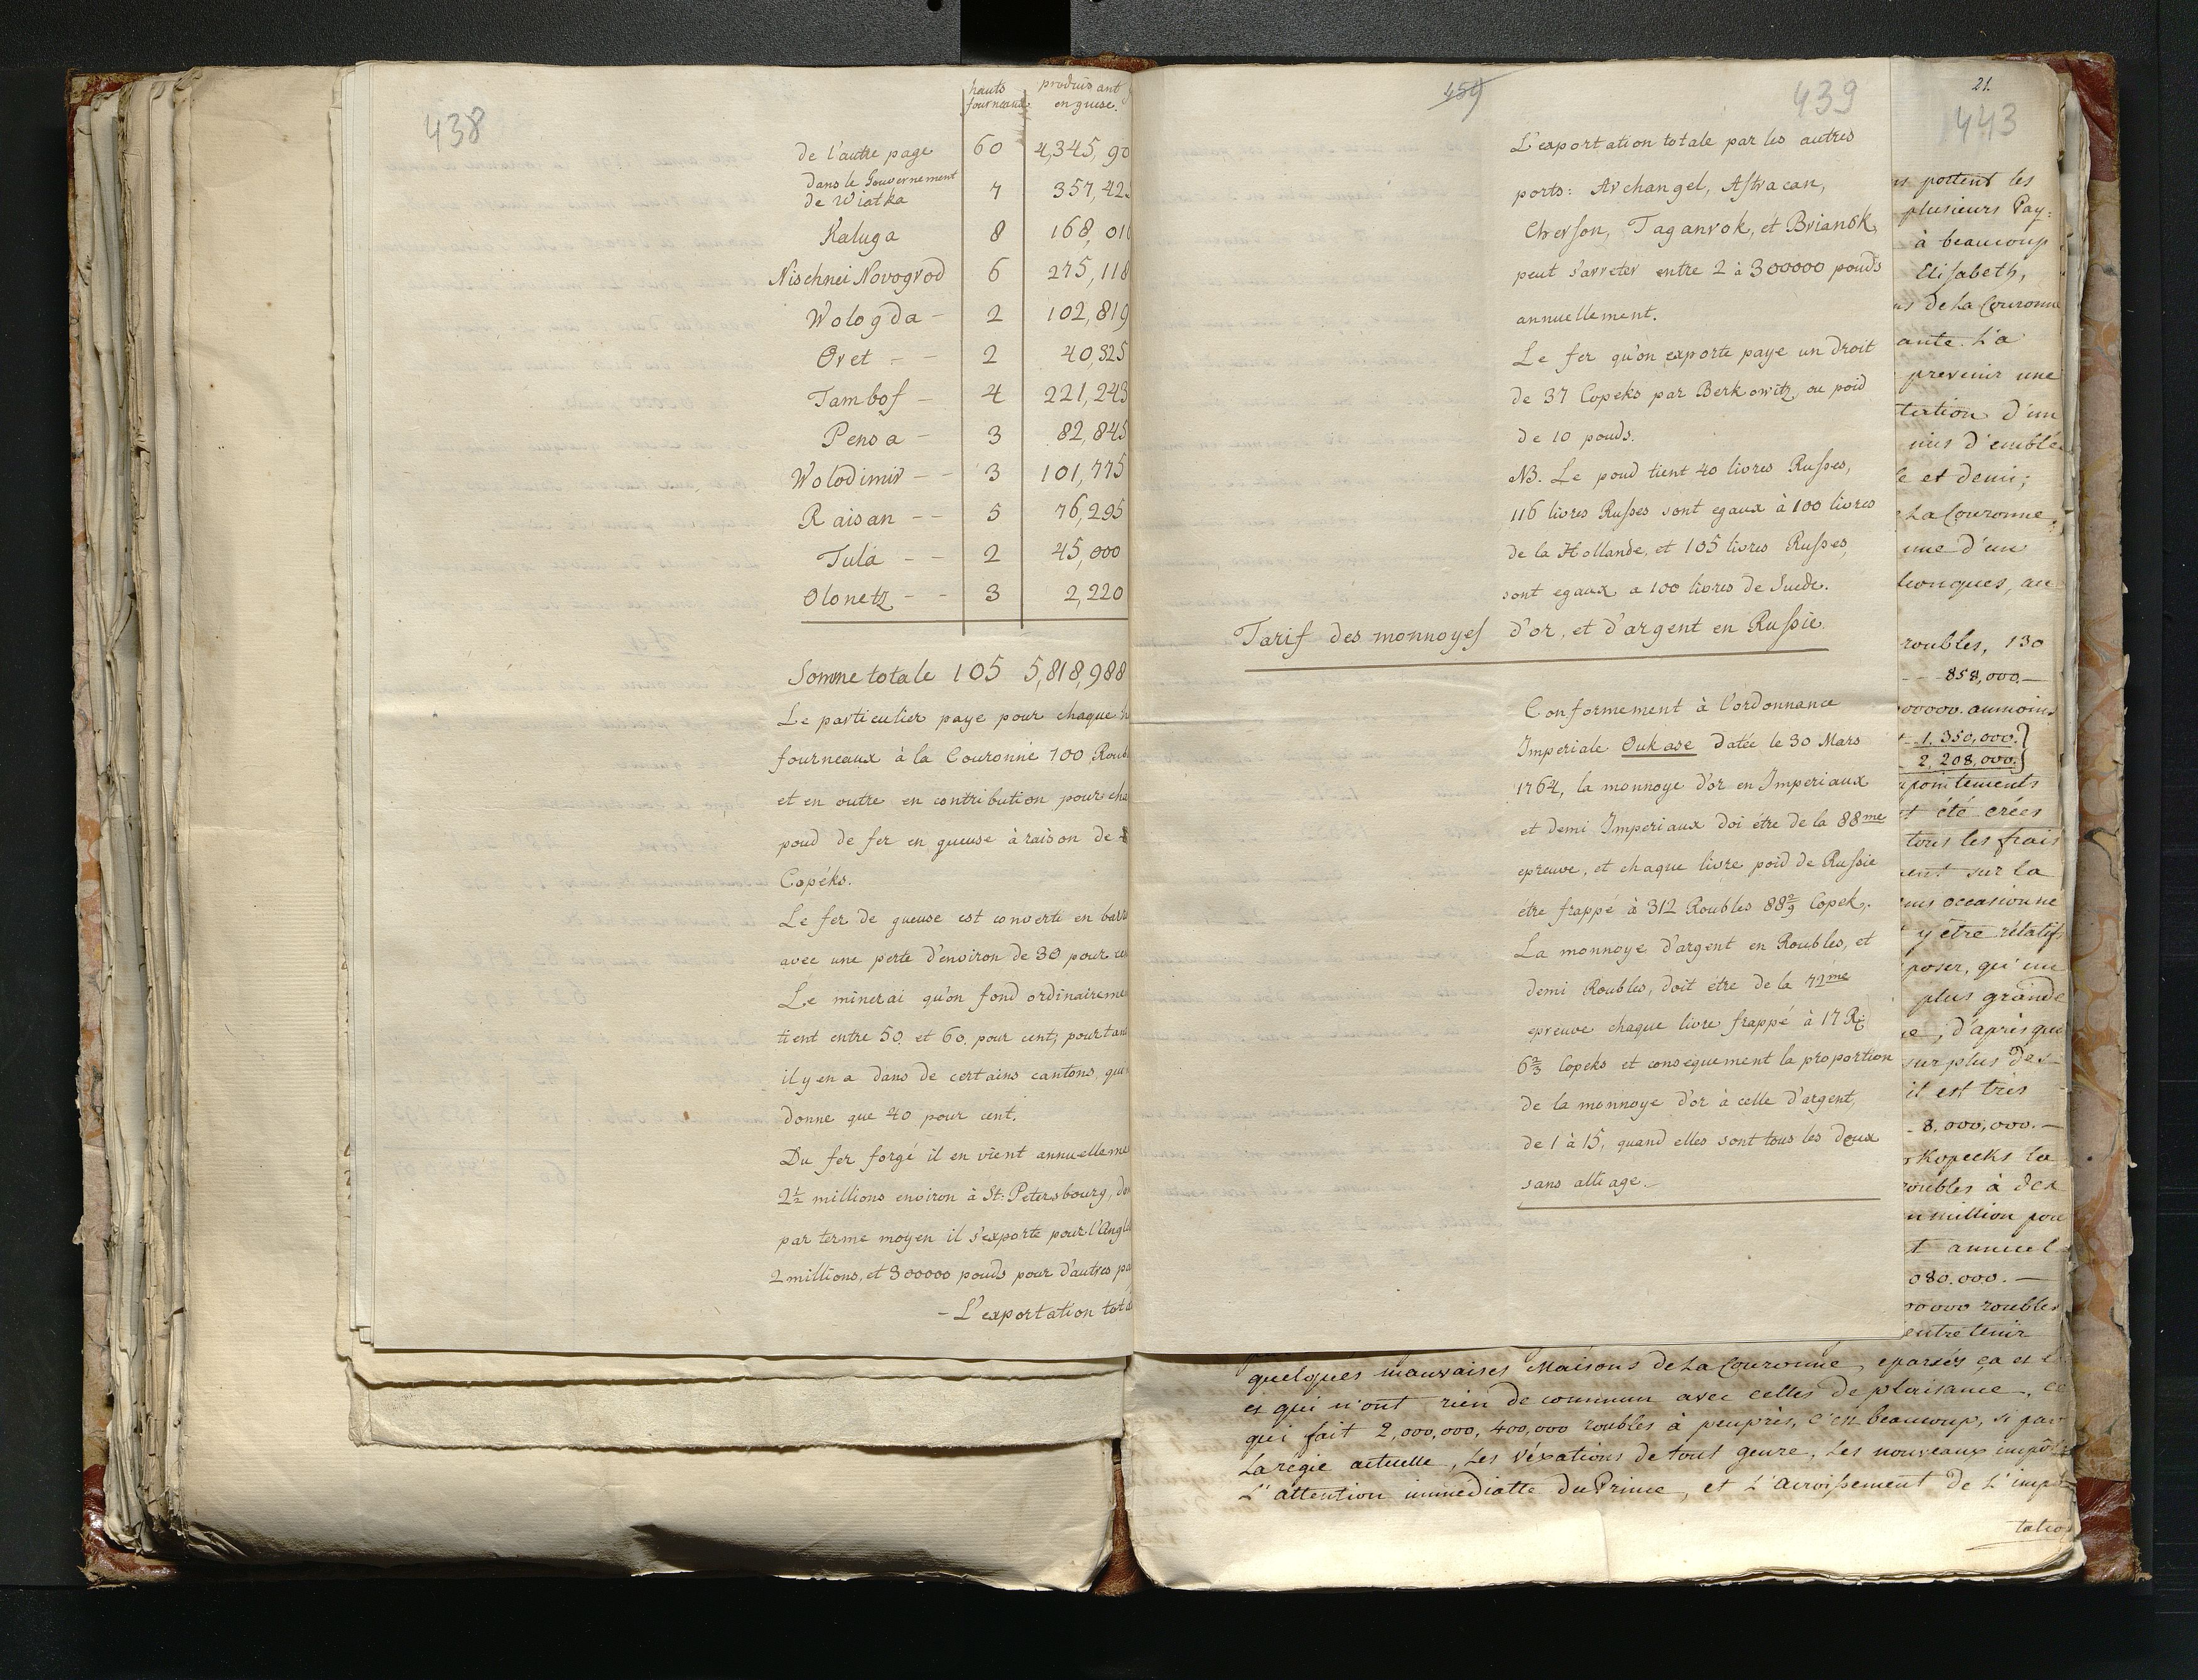 438
hauts produisant
fourneaux en guese.
de l'autre page 60 4,345,90
dans le Gouvernement
de Wiatka 7 357,425
Kaluga 8 168,010
Nischnei Novogrod 6 275,118
Wologda - 2 102,819
Orel - - 2 40,325
Tambof - 4 221,243
Pensa - 3 82,845
Wolodimir - - 3 101,775
Raisan - - 5 76,295
Tula - - 2 45,000
Olonetz - - 3 2,220
Somme totale 105 5,818,988
Le particulier paye pour chaque h
fourneaux à la Couronne 100 Roub
et en outre en contribution pour cha
poud de fer en gueuse à raison de
Copéks.
Le fer de gueuse est converti en barr
avec une perte d'environ de 30 pour ce
Le minerai qu'on fond ordinaireme
tient entre 50. et 60. pour cent; pourtant
il y en a dans de certains cantons, qui
donne que 40 pour cent.
Du fer forgé il en vient annuelleme
2½ millions environ à St: Petersbourg, do
par terme moyen il s'exporte pour l'Angle
2 millions, et 300000 pouds pour d'autres pa
- L'exportation tota
459
439
L'exportation totale par les autres
ports: Archangel, Astracan,
Cherson, Taganrok, et Briansk,
peut s'arreter entre 2 à 300000 pouds
annuellement.
Le fer qu'on exporte paye un droit
de 37 Copeks par Berkowitz, ou poid
de 10 pouds.
NB. Le poud tient 40 livres Russes,
116 livres Russes sont egaux à 100 livres
de la Hollande, et 105 livres Russes,
sont egaux a 100 livres de Suede.
Tarif des monnoyes d'or, et d'argent en Russie
Conformement à l'ordonnance
Imperiale Oukase datée le 30 Mars
1764, la monnoye d'or en Imperiaux
et demi Imperiaux doi étre de la 88me
epreuve, et chaque livre poid de Russie
étre frappé à 312 Roubles 88 2/9 Copek.
La monnoye d'argent en Roubles, et
demi Roubles, doit étre de la 72me
epreuve chaque livre frappé à 17 R:
6 2/3 Copeks et consequement la proportion
de la monnoye d'or à celle d'argent,
de 1 à 15, quand elles sont tous les deux
sans alliage.
21.
443
portent les
plusieurs Pay:
à beaucoup
Elisabeth,
de la Couronne
ante. La
prevenir une
tation d'un
mis d'emblé
e et demi;
La Couronne
une d'un
lionques, au
roubles, 130
- - 858,000.—
00000. aumoins
1. 350,000.
2, 208,000.
pointements
été crées
tous les frais
ent sur la
occasionne
y être rélatifs
poser, qu'une
plus grande
d'après que
surplus des
il est tres
- 8,000,000.—
Kopecks la
roubles à dex
million pour
t annuel
080.000. —
00000 roubles
entretenir
quelques mauvaises Maisons de la Couronne, eparsés ça et
et qui n'ont rien de commun avec celles de plaisance, ce
qui fait 2,000,000, 400,000 roubles à peuprès, c'est beaucoup, si par
La régie actuelle, Les véxations de tout genre, Les nouveaux impôts
L'attention immédiatte du Prince, et L'accroissement de L'impo
tation